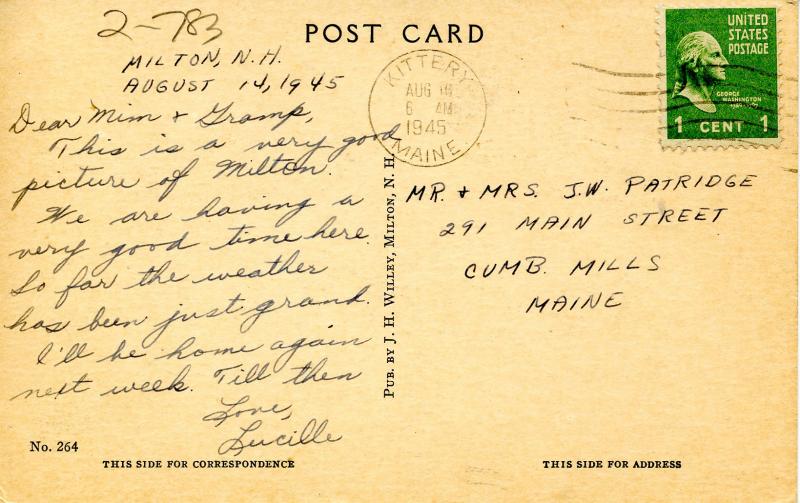 2-783
POST CARD
MILTON, N.H.
AUGUST 14, 1945
Dear Mim + Gramp,
This is a very good
picture of Milton.
We are having a
very good time here.
So far the weather
has been just grand.
I'll be home again
next week. Till then
Love,
Lucille
No. 264
THIS SIDE FOR CORRESPONDENCE
PUB. BY J. H. WILLEY, MILTON, N. H.
KITTERY
AUG
6 AM
1945
MAINE
UNITED
STATES
POSTAGE
GEORGE
WASHINGTON
1 CENT 1
MR. + MRS. J.W. PATRIDGE
291 MAIN STREET
CUMB. MILLS
MAINE
THIS SIDE FOR ADDRESS